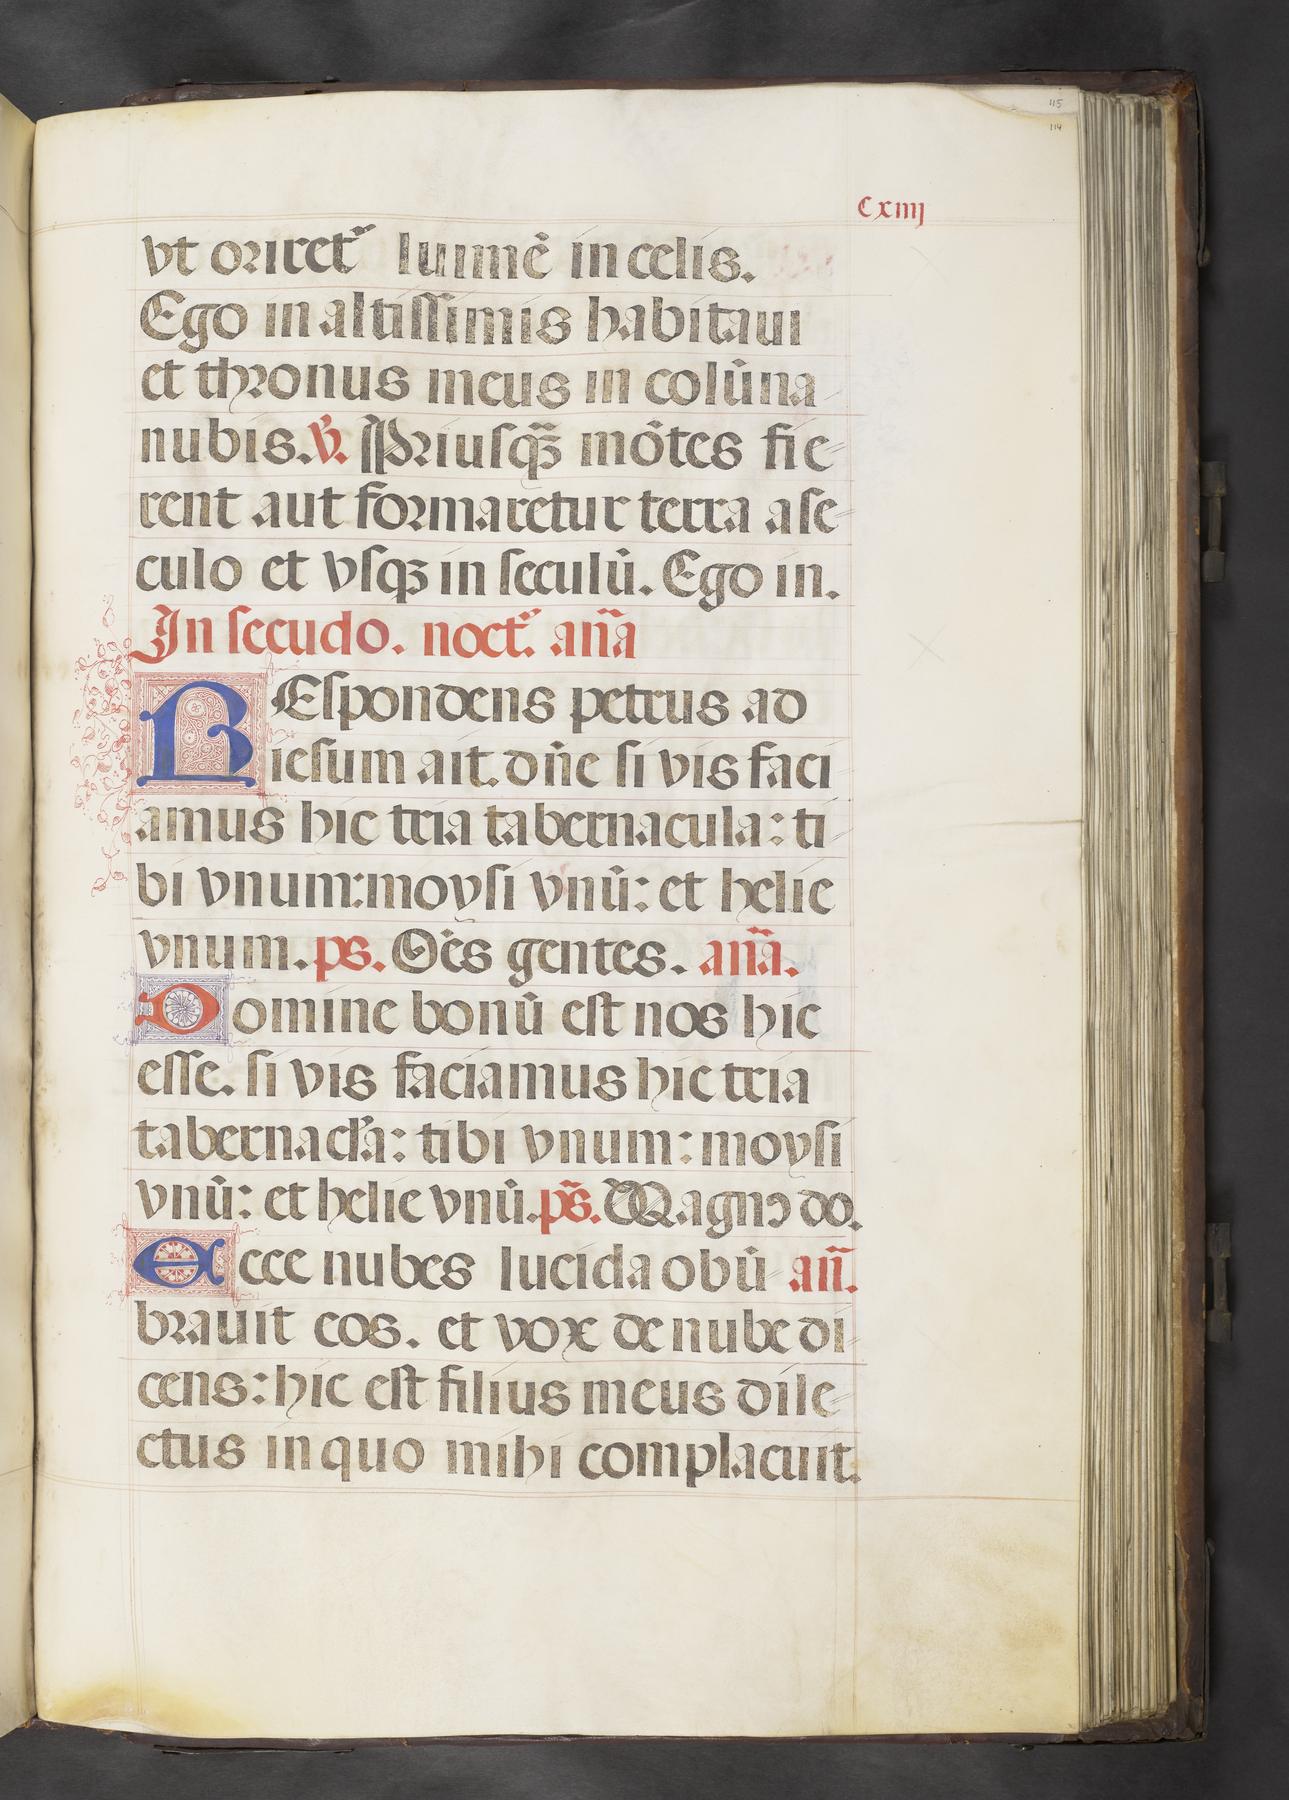 115
114
Cxiiij
vt oriret᷑ luimē in celis.
Ego in altissimis habitaui
et thronus meus in colūna
nubis. ℣. Priusqȝ̄ mōtes fie-
rent aut formaretur terra a se-
culo et vsqȝ in seculū. Ego in.
In secudo. noct᷑. añā
REspondens petrus ad
iesum ait. dñe si vis faci
amus hic tria tabernacula: ti
bi vnum: moysi vnū: et helie
vnum. ps. Oēs gentes. añā.
Domine bonū est nos hic
esse. si vis faciamus hic tria
tabernacl̕a: tibi vnum: moysi
vnū: et helie vnū. ps̄. Magnꝰ do.
Ecce nubes lucida obū añ̄.
brauit eos. et vox de nube di-
cens: hic est filius meus dile-
ctus in quo mihi complacuit.